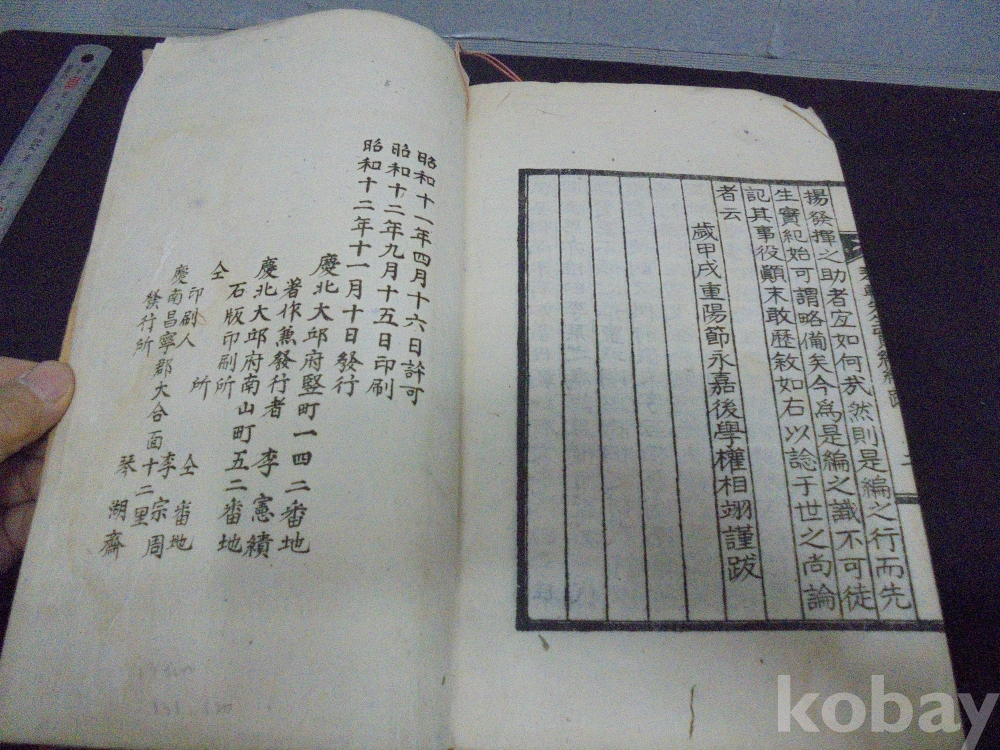 揚發揮之助者宜如何哉然則是編之行而先
生實紀始可謂略備矣今爲是編之識不可徒
記其事役顚末敢歷敘如右以諗于世之尚論
者云
歲甲戌重陽節永嘉後學權相翊謹跋
昭和十一年四月十六日許可
昭和十二年九月十五日印刷
昭和十二年十一月十日發行
慶北大邱府竪町一四二番地
著作兼發行者 李憲績
慶北大邱府南山町五二番地
石版印刷所
仝 所 仝番地
印刷人 李宗周
慶南昌寧郡大合面十二里
發行所 琴湖齋
kobay